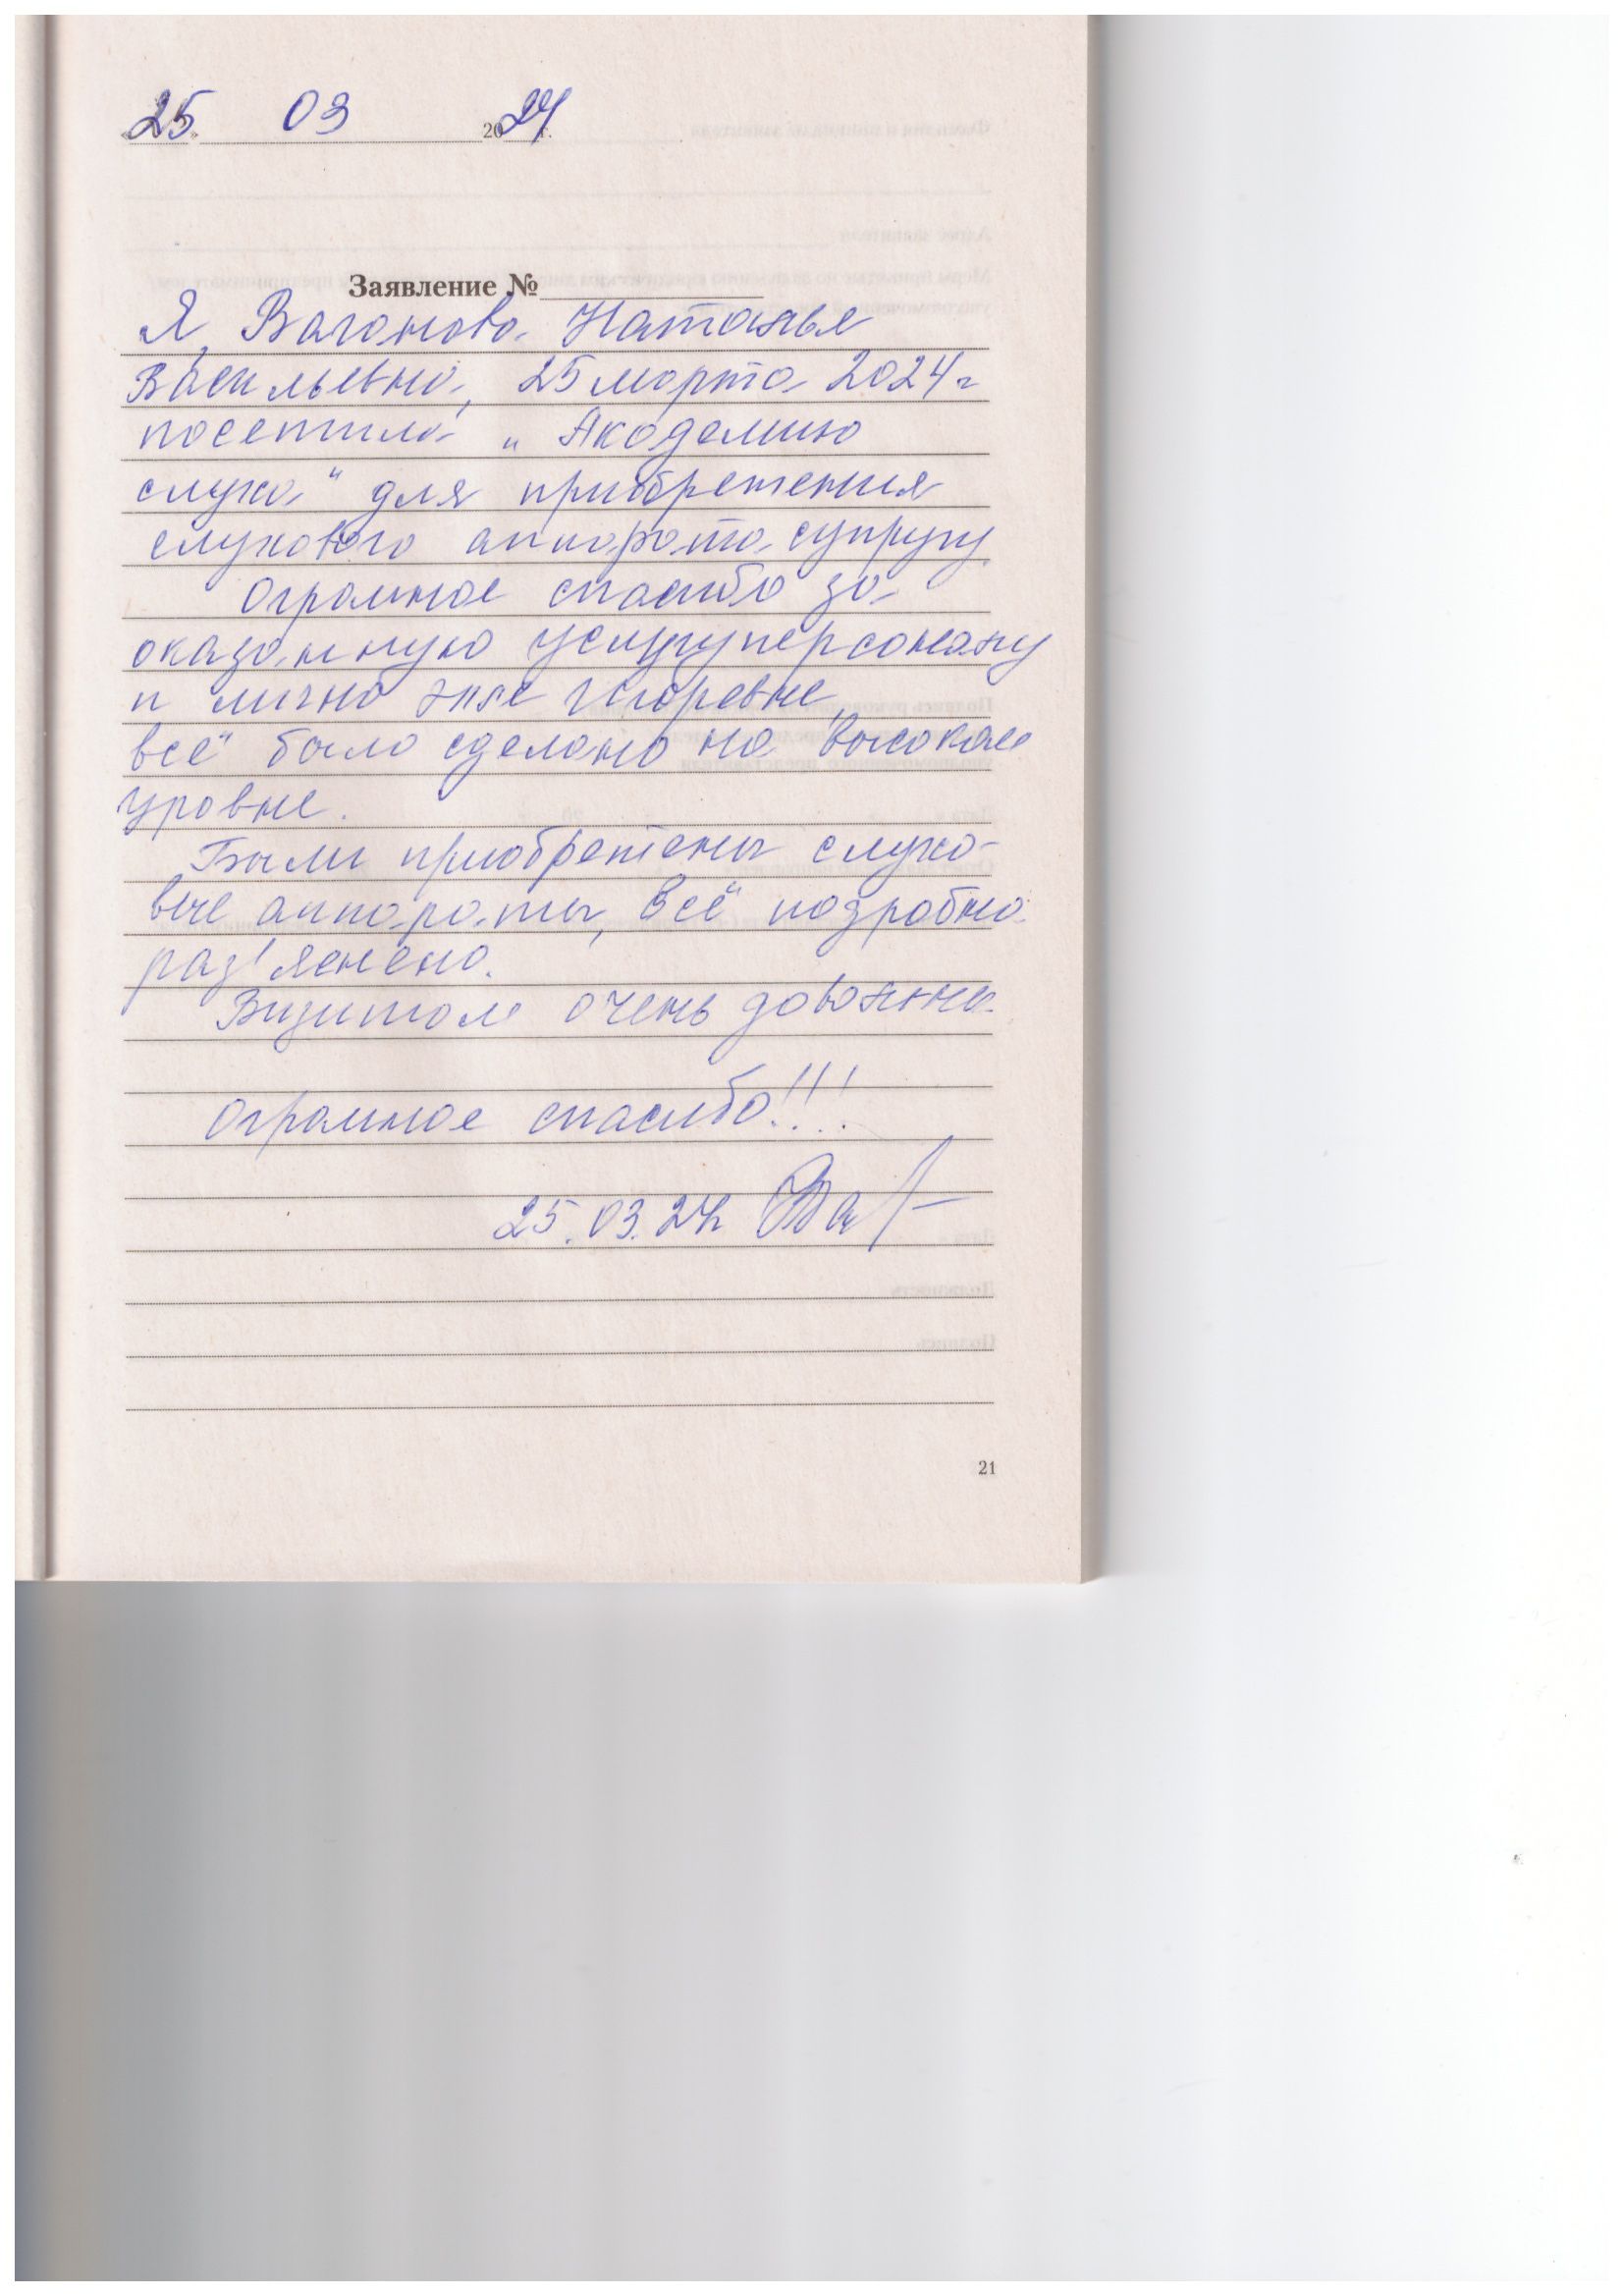 25. 03 2024 г.
Заявление №
Я, Ваганова Наталья
Васильевна, 25 марта 2024 г
посетила „Академию
слуха" для приобретения
слухового аппарата супругу.
Огромное спасибо за
оказанную услугу персоналу
и лично Игоревне,
всё было сделано на высоком
уровне.
Были приобретены слухо-
вые аппараты, всё подробно
раз'яснено.
Визитом очень довольна.
Огромное спасибо!!!
25.03.24г.
21